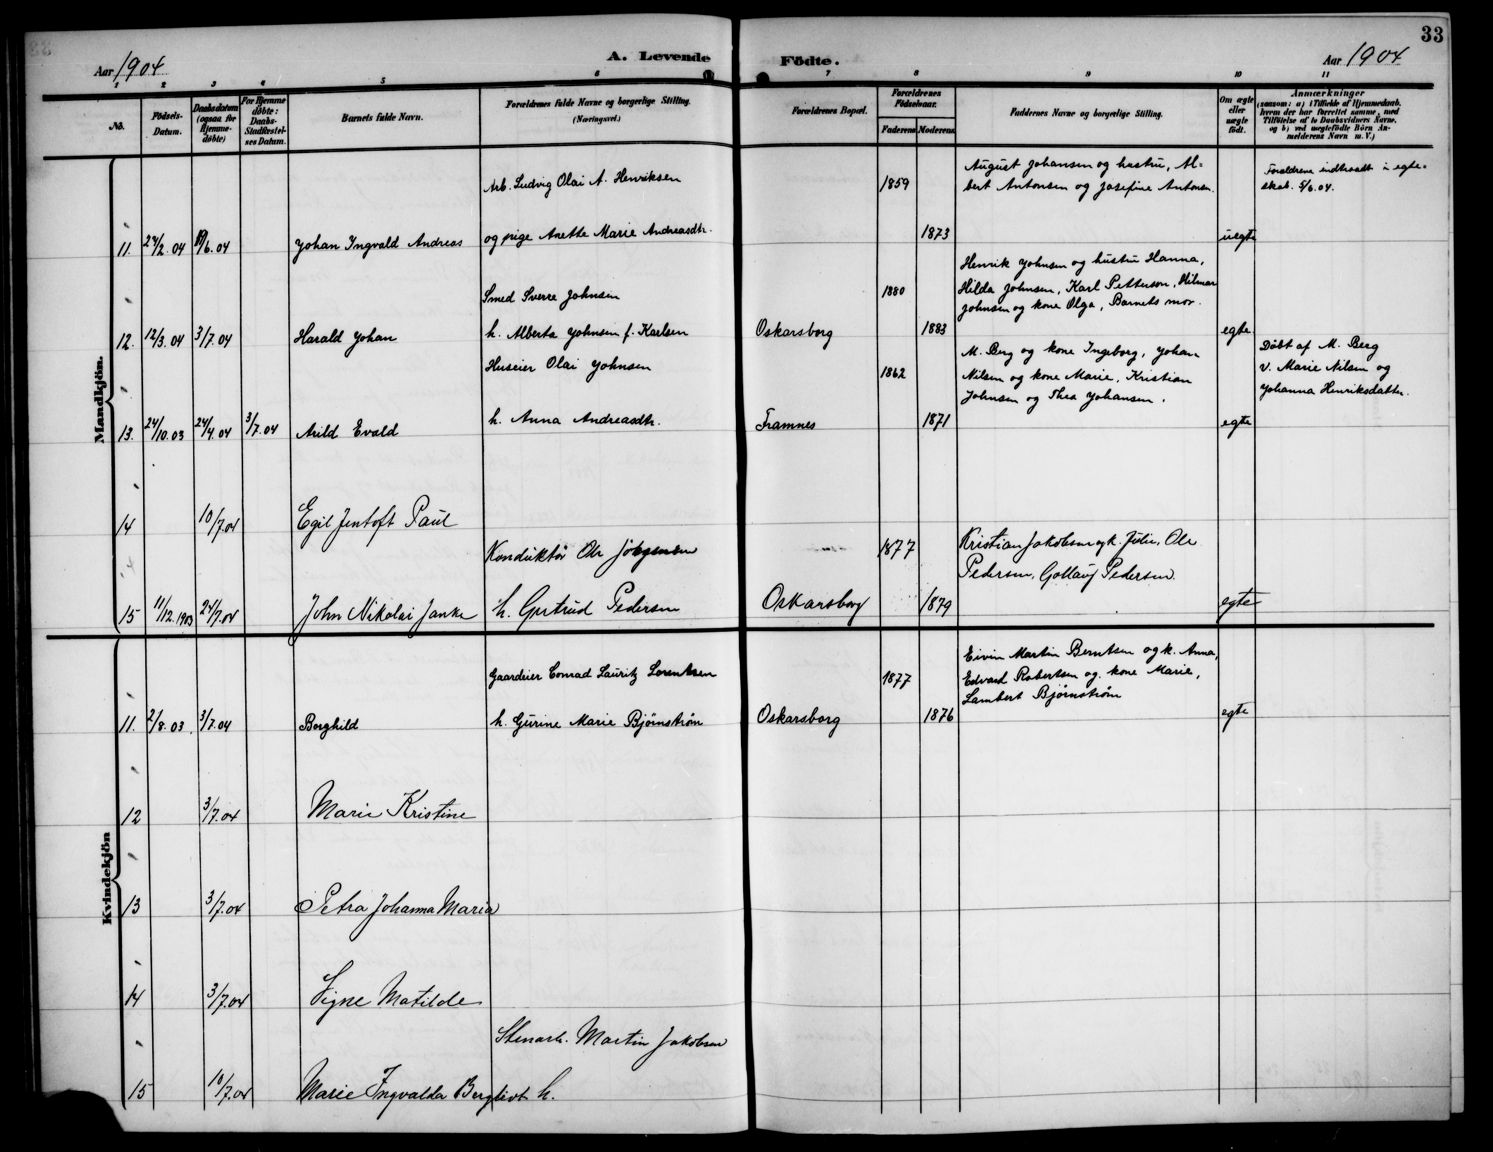 33
Aar 1904
A. Levende Fødte.
Aar 1904
1 2 3 4 5 6 7 8 9 10 11
No.
Fødsels-Datum.
Daabsdatum (ogsaa for Hjemme-døbte)
For Hjemme døbte: Daabs-Stadfæstel-ses Datum.
Barnets fulde Navn.
Forældrenes fulde Navne og borgerlige Stilling.
(Næringsvei.)
Forældrenes Bopæl.
Forældrenes Fødselsaar.
Faderens Moderens
Faddernes Navne og borgerlige Stilling.
Om ægte eller uægte født.
Anmærkninger
(saasom: a) i Tilfælde af Hjemmedaab, hvem der har forrettet samme, med Tilføielse af to Daabsvidners Navne, og b) ved uægtefødte Børn Anmelderens Navn m. V.)
Mandkjøn.
Arb. Ludvig Olai A. Henriksen
1859
August Johansen og hustru, Al-
bert Antonsen og Josefine Antonsen.
Forældrene indtraadt i egte-
skab. 5/6.04.
11. 24/2 04 19/6.04 Johan Ingvald Andreas og pige Anette Marie Andreasdtr. 1873 uegte
Smed Sverre Johnsen
1880
Henrik Johnsen og hustru Hanna,
Hilda Johnsen, Karl Petterson, Hilmar
Johnsen og kone Olga, Barnets mor.
12. 12/3.04 3/7.04 Harald Johan h. Alberta Johnsen f. Karlsen Oskarsborg 1883 egte
Huseier Olai Johnsen
1862
M. Berg og kone Ingeborg, Johan
Nilsen og kone Marie, Kristian
Johnsen og Thea Johansen.
Døbt af M. Berg
v. Marie Nilsen og
Johanna Henriksdatter.
13. 24/10.03 24/4.04 3/7.04 Arild Evald h. Anna Andreasdtr. Framnes 1871 egte
14 10/7.04 Egil Jentoft Paul
Konduktør Ole Jørgensen
1877
Kristian Jakobsen og k. Julie, Ole
Pedersen, Gotlauf Pedersen.
15 11/12.1903 24/7.04 John Nikolai Janke h. Gertrud Pedersen Oskarsborg 1879 egte
Kvindekjön
Gaardeier Conrad Lauritz Lorentsen
1877
Eivin Martin Berntsen og k. Anna,
Edvard Robertsen og kone Marie,
Lambert Bjørnstrøm
11. 2/8.03 3/7.04 Borghild h. Gurine Marie Bjørnstrøm Oskarsborg 1876 egte
12 3/7.04 Marie Kristine
13 3/7.04 Petra Johanna Maria
14 3/7.04 Signe Matilde
Stenarb. Martin Jakobsen
15 10/7.04 Marie Ingvalda Bergliot h.